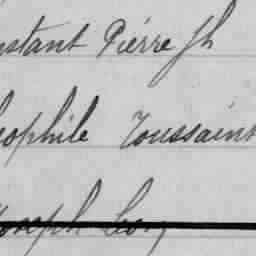 nstant Pierre Jh
éophile Toussaint
Joseph Léon